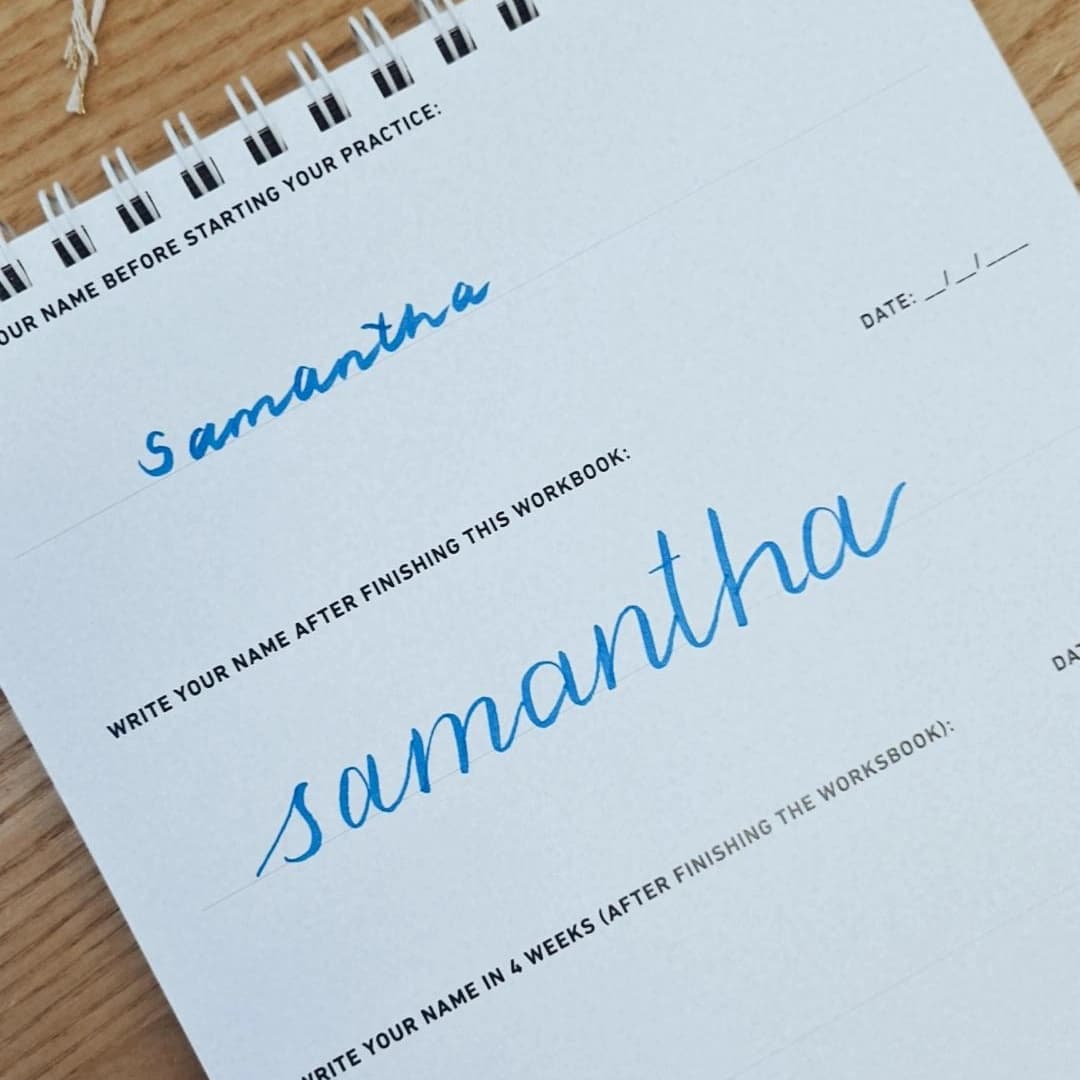 OUR NAME BEFORE STARTING YOUR PRACTICE:
Samantha
DATE: __/__/____
WRITE YOUR NAME AFTER FINISHING THIS WORKBOOK:
samantha
DAT
WRITE YOUR NAME IN 4 WEEKS (AFTER FINISHING THE WORKSBOOK):